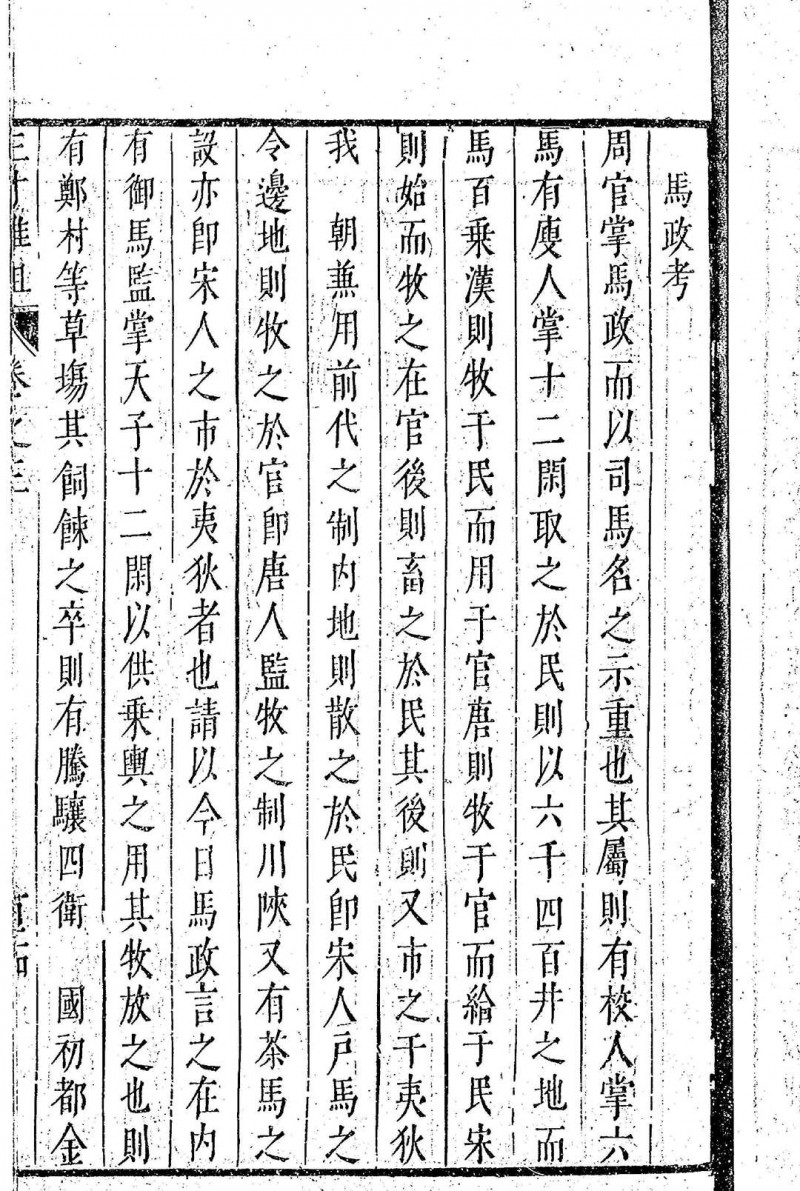 馬政考
周官掌馬政而以司馬名之示重也其屬則有校人掌六
馬有廋人掌十二閑取之於民則以六千四百井之地而
馬百乗漢則牧于民而用于官唐則牧于官而給于民宋
則始而牧之在官後則畜之於民其後則又市之于夷狄
我 朝兼用前代之制内地則散之於民即宋人戸馬之
令邊地則牧之於官即唐人監牧之制川陜又有茶馬之
設亦即宋人之市於夷狄者也請以今日馬政言之在内
有御馬監掌天子十二閑以供乗輿之用其牧放之也則
有鄭村等草塲其飼餗之卒則有騰驤四衛 國初都金
卷之三